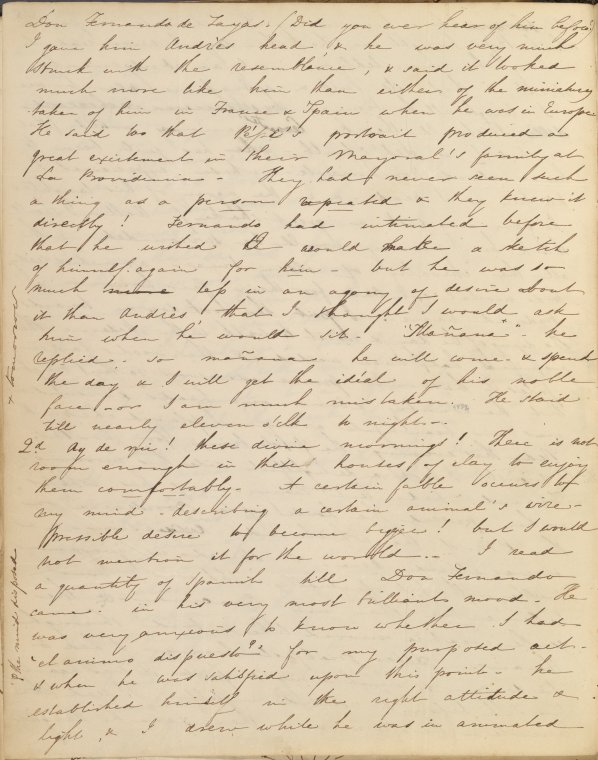 Don Fernando de Layas. (Did you ever hear of him before?)
I gave him Andres head, & he was very much
struck with the resemblance, & said it looked
much more like him than either of the miniatures
taken of him in France & Spain when he was in Europe
He said too that Pepe's portrait produced a
great excitement in their Mayoral's family at
La Providencia - They had never seen such
a thing as a person repeated & they knew it
directly! Fernando had intimated before
that he wished I would make a sketch
of himself again for him - but he was so
much less in an agony of desire about
it than Andres, that I thought I would ask
him when he would sit. "Mañana" - he
replied - so mañana he will come - & spend
the day & I will get the ideal of his noble
face - or I am much mistaken. He staid
till nearly eleven o'clk to night -.
2d Ay de mi! these divine mornings! There is not
room enough in these houses of clay to enjoy
them comfortably - A certain fable occurs to
my mind - describing a certain animal's irre-
pressible desire to become bigger! but I would
not mention it for the world -. I read
a quantity of Spanish till Don Fernando
came - in his very most brilliant mood - He
was very anxious to know whether I had
"el animo dispuesto"? for my purposed act -
& when he was satisfied upon this point - he
established himself in the right attitude &
light, & I drew while he was in animated
& tomorrow
? the mind disposed